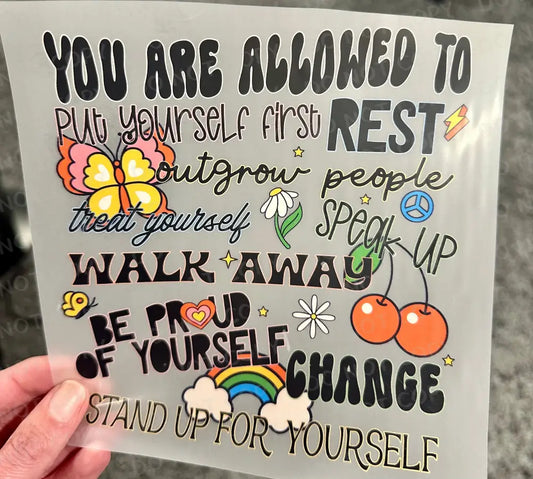 YOU ARE ALLOWED TO
PUT YOURSELF FIRST
REST
outgrow people
treat yourself
SPEAK UP
WALK AWAY
BE PROUD
OF YOURSELF
CHANGE
STAND UP FOR YOURSELF